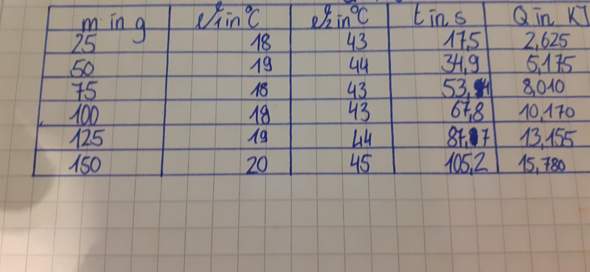 m in g ϑ1 in °C ϑ2 in °C t in s Q in KJ
25 18 43 17,5 2,625
50 19 44 34,9 5,175
75 18 43 53,4 8,010
100 18 43 67,8 10,170
125 19 44 87,7 13,155
150 20 45 105,2 15,780